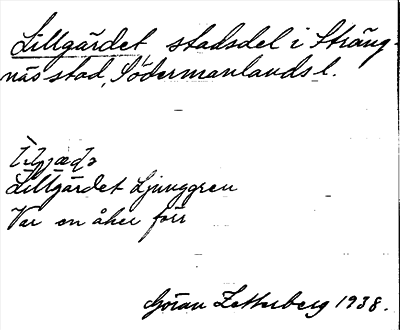 Lillgärdet stadsdel i Sträng-
näs stad, Södermanlands l.
Lillgärdet Ljunggren
Var en åker förr
Göran Zetterberg 1938.